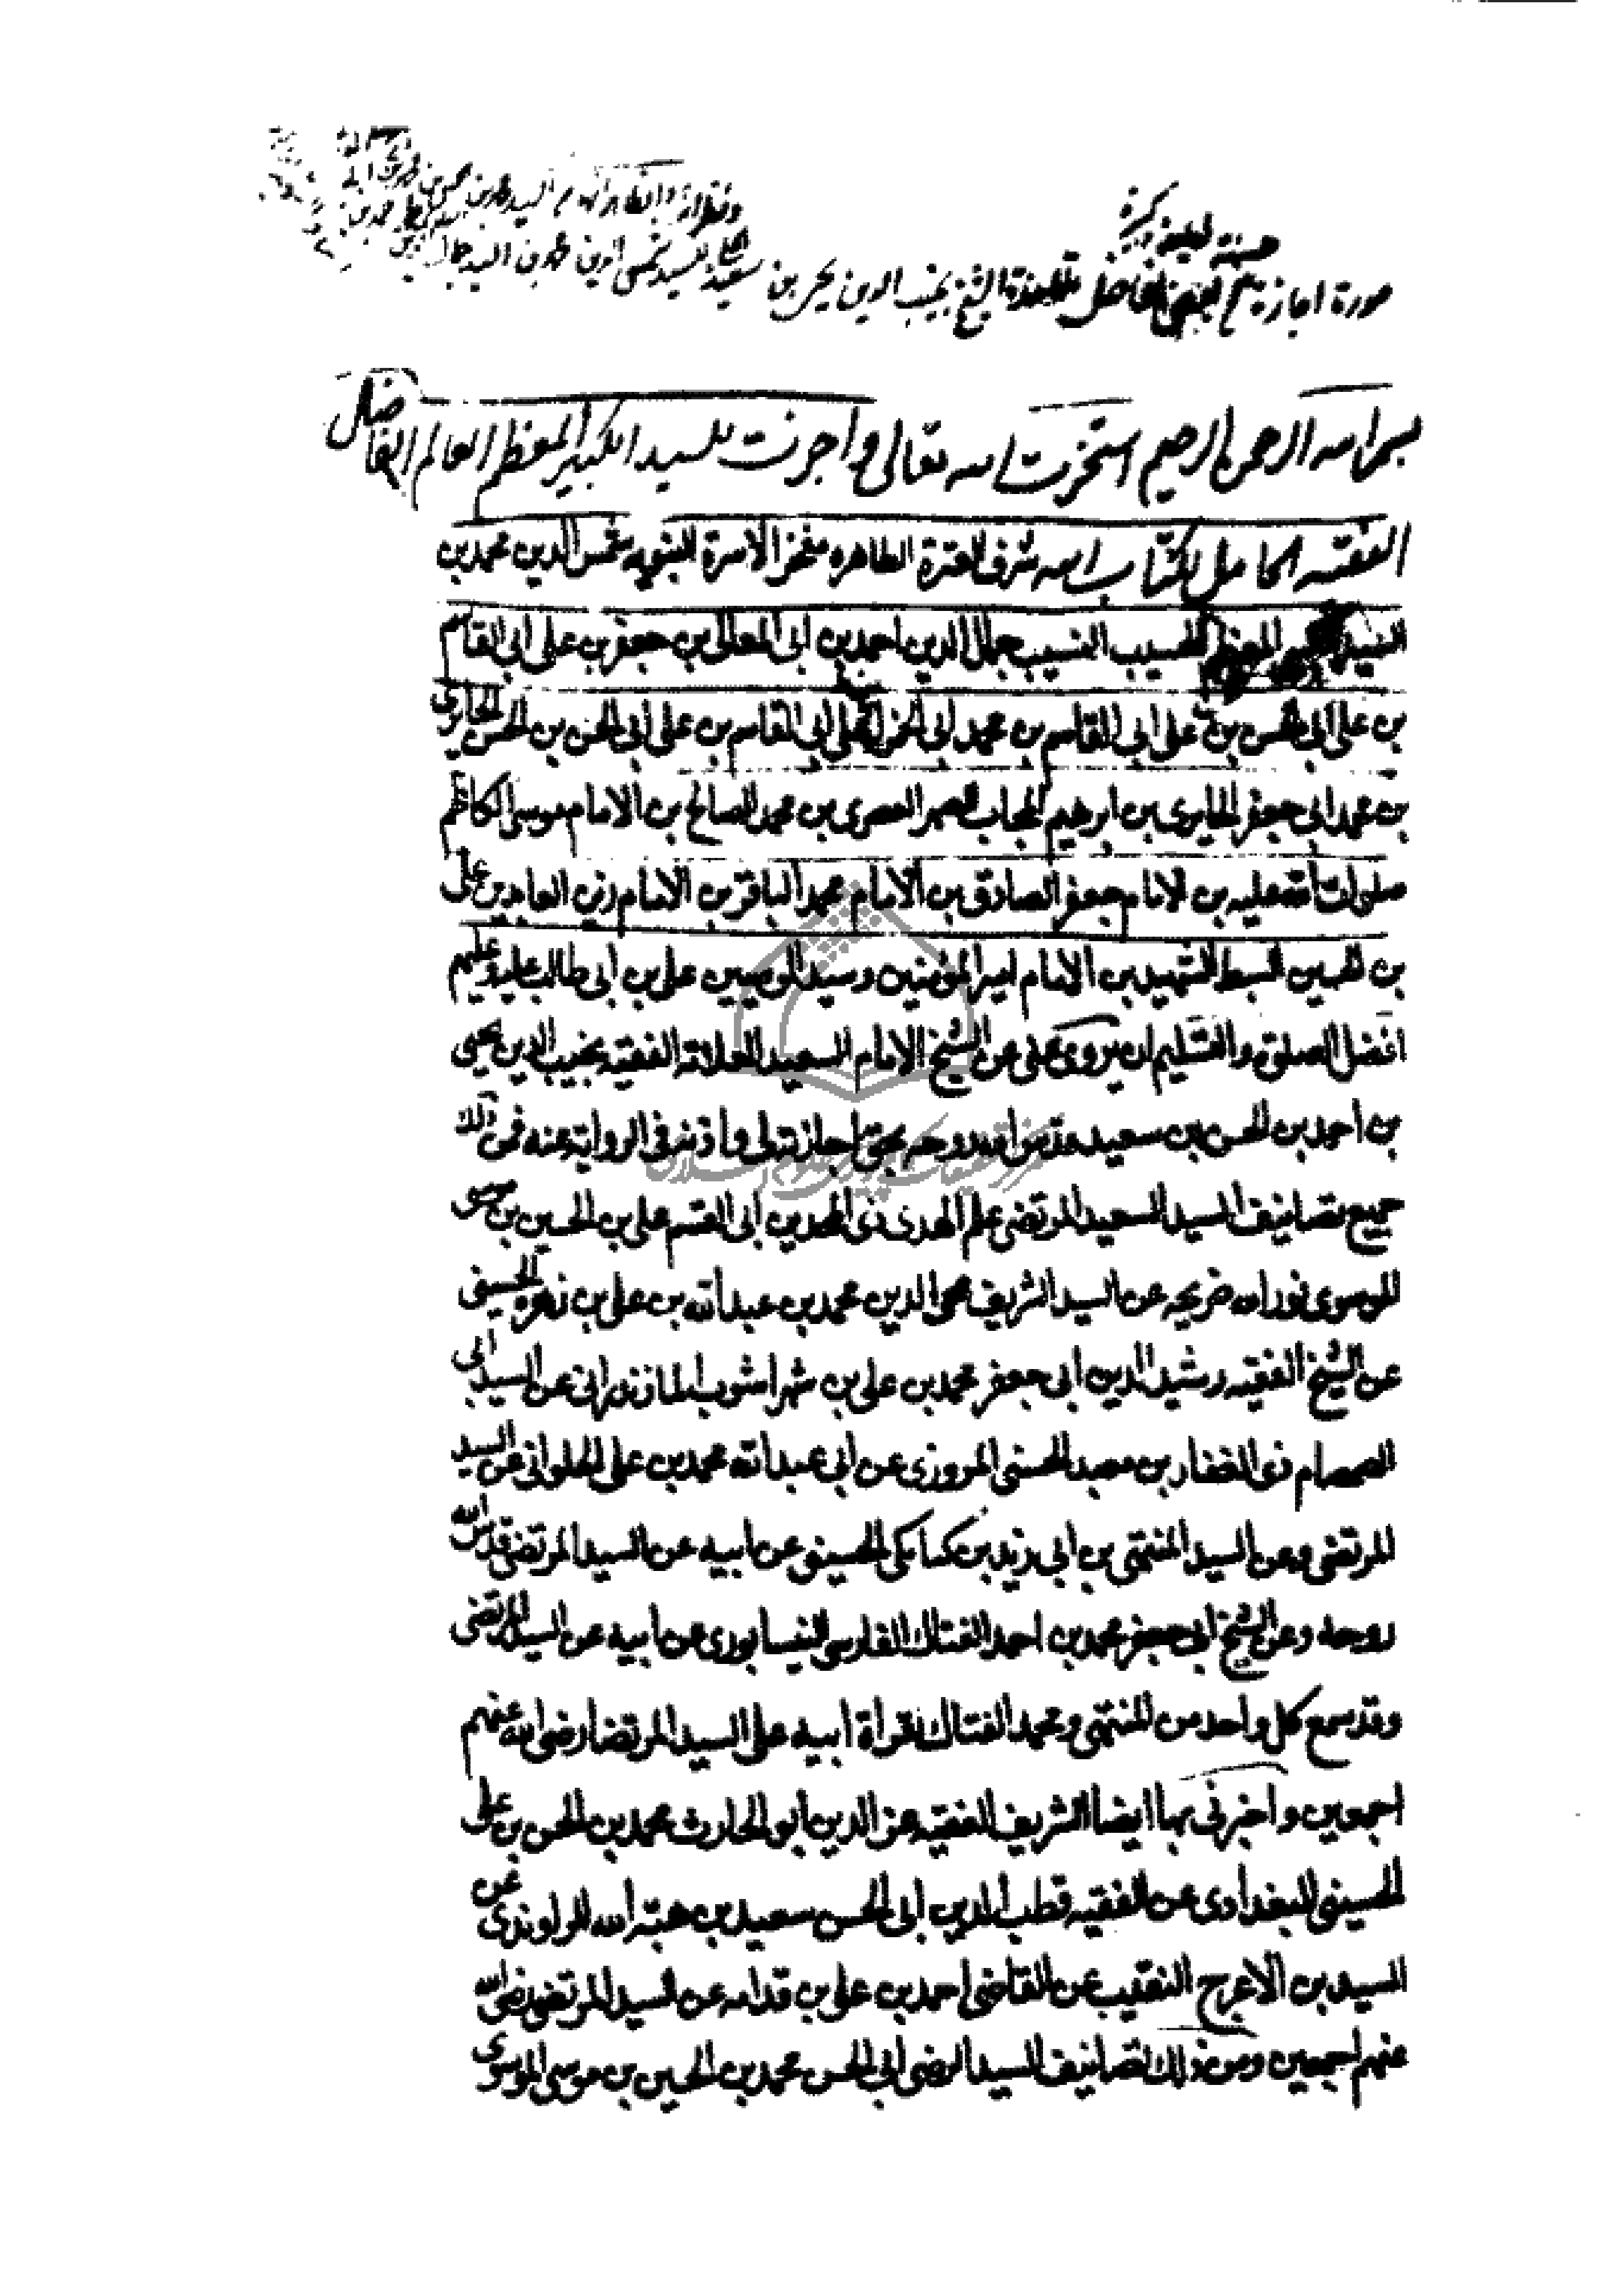 حسنة لطيفة كبيرة
صورة اجازة الشيخ نجيب الدين يحيى بن سعيد للسيد شمس الدين محمد بن السيد جمال
بسم الله الرحمن الرحيم استخرت الله تعالى واجزت للسيد الكبير المعظم العالم الفاضل
الفقيه الحامل لكتاب الله شرف العترة الطاهره مفخر الاسرة النبويه شمس الدين محمد بن
السيد المعظم الحسيب النسيب جمال الدين احمد بن ابى المعالى بن جعفر بن على ابى القاسم
بن على ابى الحسن بن على ابى القاسم بن محمد ابى الحمد بن على ابى القاسم بن على ابى الحسن بن الحسن الحايرى
بن محمد ابى جعفر الحايرى بن ابرهيم المجاب الصهر العمرى بن محمد الصالح بن الامام موسى الكاظم
صلوات الله عليه بن الامام جعفر الصادق بن الامام محمد الباقر بن الامام زين العابدين على
بن الحسين السبط الشهيد بن الامام امير المؤمنين وسيد الوصيين على بن ابى طالب عليه وعليهم
افضل الصلوة والتسليم ان يروى عنى عن الشيخ الامام السعيد العلامة الفقيه نجيب الدين يحيى
بن احمد بن الحسن بن سعيد قدس الله روحه بحق اجازته لى واذنه فى الرواية عنه فمن ذلك
جميع تصانيف السيد السعيد المرتضى علم الهدى ذى المجدين ابى القسم على بن الحسين بن موسى
الموسوى نور الله ضريحه عن السيد الشريف محى الدين محمد بن عبد الله بن على بن زهره الحسينى
عن الشيخ الفقيه رشيد الدين ابى جعفر محمد بن على بن شهراشوب المازندرانى عن السيد ابى
الصمصام ذى الفقار بن معبد الحسنى المروزى عن ابى عبد الله محمد بن على الحلوانى عن السيد
المرتضى وعن السيد المنتهى بن ابى زيد بن كيابكى الحسينى عن ابيه عن السيد المرتضى قدس الله
روحه وعن الشيخ ابى جعفر محمد بن احمد الفتال الفارسى النيسابورى عن ابيه عن السيد المرتضى
وقد سمع كل واحد من المنتهى ومحمد الفتال بقراة ابيه على السيد المرتضا رضى الله عنهم
اجمعين واخبرنى بها ايضا الشريف الفقيه عز الدين ابو الحارث محمد بن الحسن بن على
الحسينى البغدادى عن الفقيه قطب الدين ابى الحسن سعيد بن هبة الله الراوندى عن
السيد بن الاعرج النقيب عن القاضى احمد بن على بن قدامه عن السيد المرتضى رضى الله
عنهم اجمعين ومن ذلك تصانيف السيد الرضى ابى الحسن محمد بن الحسين بن موسى الموسوى